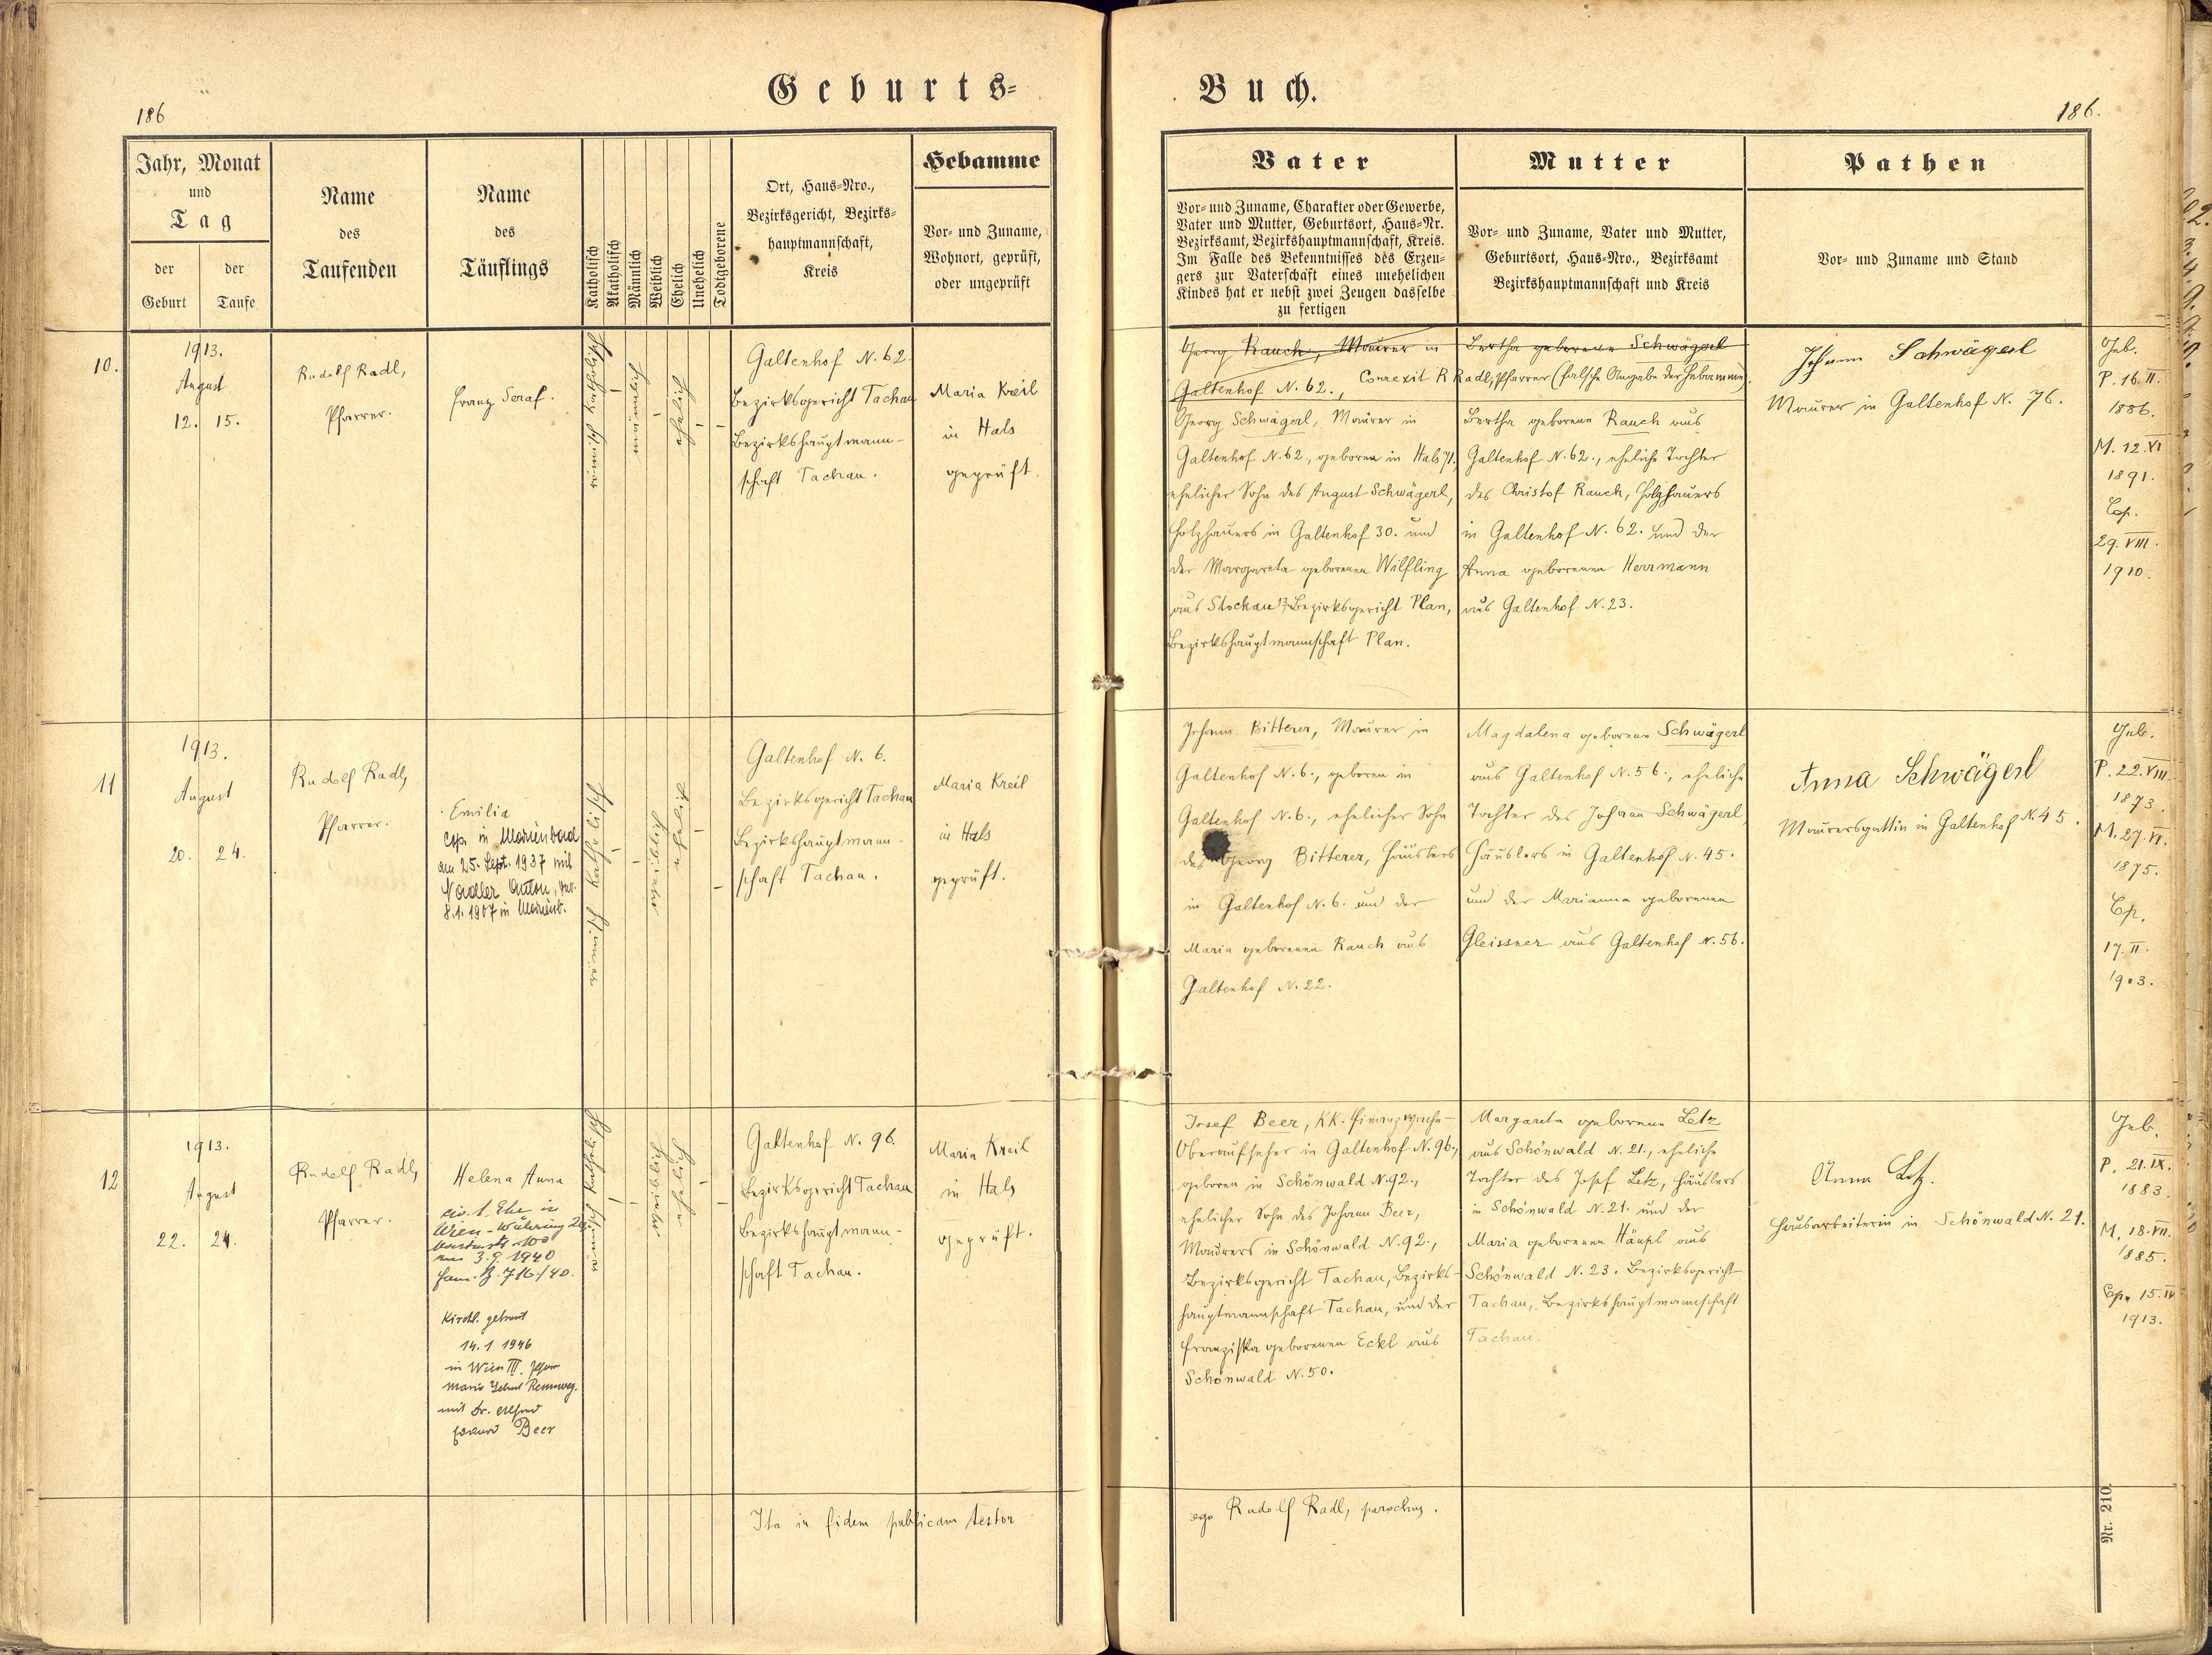 Geburts-
Buch.
186
186.
Jahr, Monat
und
Tag
der
Geburt
der
Taufe
Name
des
Taufenden
Name
des
Täuflings
Katholisch
Akatholisch
Männlich
Weiblich
Ehelich
Unehelich
Todtgeborene
Ort, Haus-Nro.,
Bezirksgericht, Bezirks-
hauptmannschaft,
Kreis
Hebamme
Vor- und Zuname,
Wohnort, geprüft,
oder ungeprüft
Vater
Vor- und Zuname, Charakter oder Gewerbe,
Vater und Mutter, Geburtsort, Haus-Nr.
Bezirksamt, Bezirkshauptmannschaft, Kreis.
Im Falle des Bekenntnisses des Erzeu-
gers zur Vaterschaft eines unehelichen
Kindes hat er nebst zwei Zeugen dasselbe
zu fertigen
Mutter
Vor- und Zuname, Vater und Mutter,
Geburtsort, Haus-Nro., Bezirksamt
Bezirkshauptmannschaft und Kreis
Pathen
Vor- und Zuname und Stand
10.
1913.
August
12. 15.
Rudolf Radl,
Pfarrer.
Franz Seraf.
Galtenhof N. 62.
Bezirksgericht Tachau
Bezirkshauptmann-
schaft Tachau.
Maria Kreil
in Hals
geprüft.
Georg Rauch, Maurer in
Galtenhof N. 62.,
Bertha geborene Schwägerl
Correxit R Radl, Pfarrer (falsche Angabe der Hebamme).
Georg Schwägerl, Maurer in
Galtenhof N. 62., geboren in Hals 71,
ehelicher Sohn des August Schwägerl,
Holzhauers in Galtenhof 30. und
der Margareta geborenen Wilfling
aus Stockau 13, Bezirksgericht Plan,
Bezirkshauptmannschaft Plan.
Bertha geborene Rauch aus
Galtenhof N. 62., eheliche Tochter
des Christof Rauch, Holzhauers
in Galtenhof N. 62. und der
Anna geborenen Herrmann
aus Galtenhof N. 23.
Johann Schwägerl
Maurer in Galtenhof N. 76.
Geb.
P. 16. II.
1886.
M. 12. XI
1891.
Cop.
29. VIII.
1910.
11
1913.
August
20. 24.
Rudolf Radl,
Pfarrer.
Emilia
Cop. in Marienbad
am 25. Sept. 1937 mit
Nadler Anton,
8.1.1907 in Marienb.
Galtenhof N. 6.
Bezirksgericht Tachau
Bezirkshauptmann-
schaft Tachau.
Maria Kreil
in Hals
geprüft.
Johann Bitterer, Maurer in
Galtenhof N. 6., geboren in
Galtenhof N. 6., ehelicher Sohn
des Georg Bitterer, Häuslers
in Galtenhof N. 6. und der
Maria geborenen Rauch aus
Galtenhof N. 22.
Magdalena geborene Schwägerl
aus Galtenhof N. 56., eheliche
Tochter des Johann Schwägerl,
Häuslers in Galtenhof N. 45.
und der Marianna geborenen
Gleissner aus Galtenhof N. 56.
Anna Schwägerl
Maurersgattin in Galtenhof N. 45.
Geb.
P. 22. VIII.
1873.
M. 27. VI.
1875.
Cp.
17. II.
1903.
12
1913.
August
22. 24.
Rudolf Radl,
Pfarrer.
Helena Anna
civ. 1. Ehe in
Wien-Währing
am 3.9.1940
Fam. B. 716/40.
Kirchl. getraut
14.1 1946
in Wien III. Pfarre
Maria Geburt Rennweg.
mit Dr. Alfred
Eduard Beer
Galtenhof N. 96.
Bezirksgericht Tachau
Bezirkshauptmann-
schaft Tachau.
Maria Kreil
in Hals
geprüft.
Josef Beer, KK. Finanzwache-
Oberaufseher in Galtenhof N. 96.,
geboren in Schönwald N. 92.,
ehelicher Sohn des Johann Beer,
Maurers in Schönwald N. 92.,
Bezirksgericht Tachau, Bezirks-
hauptmannschaft Tachau, und der
Franziska geborenen Eckl aus
Schönwald N. 50.
Margareta geborene Letz
aus Schönwald N. 21., eheliche
Tochter des Josef Letz, Häuslers
in Schönwald N. 21. und der
Maria geborenen Häupl aus
Schönwald N. 23. Bezirksgericht
Tachau, Bezirkshauptmannschaft
Tachau.
Anna Letz.
Hausarbeiterin in Schönwald N. 21.
Geb.
P. 21. IX.
1883.
M. 18. VII.
1885.
Cp. 15. IV
1913.
Ita in fidem publicam testor
ego Rudolf Radl, parochus.
Nr. 210.